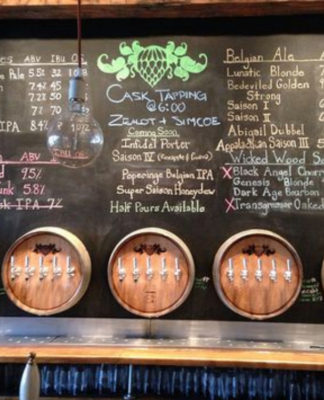 ABV IBU OZ
5.5% 32 10
7.2%
7.2% 50
7% 70
IPA 8.4%
ABV IBU
9.5%
5.8%
IPA 7%
CASK TAPPING
@ 6:00
ZEALOT + SIMCOE
Coming Soon
Infidel Porter
Saison IV (Pineapple & Guava)
Poperinge Belgian IPA
Super Saison Honeydew
Half Pours Available
Belgian Ale
Lunatic Blonde
Bedeviled Golden
Strong
Saison I
Saison II
Abigail Dubbel
Appalachian Saison III
Wicked Wood
X Black Angel Cherry
Genesis Blonde
Dark Age Bourbon
X Transgressor Oaked